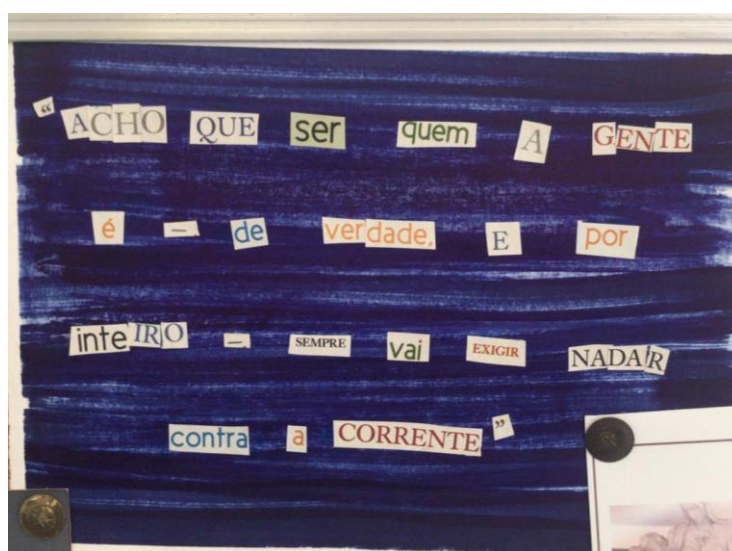 “ACHO QUE ser quem A GENTE
é – de verdade, E por
inteIRO – SEMPRE vai EXIGIR NADAR
contra a CORRENTE”